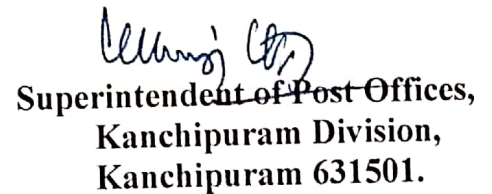 Superintendent of Post Offices,
Kanchipuram Division,
Kanchipuram 631501.